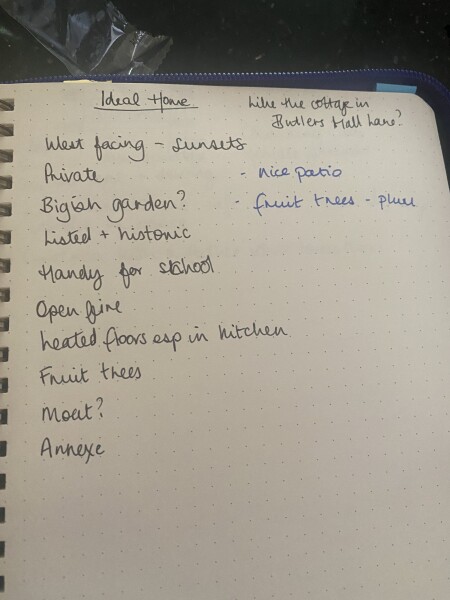 Ideal Home
Like the cottage in
Butlers Hall Lane?
West facing - sunsets
Private - nice patio
Bigish garden? - fruit trees - plum
Listed + historic
Handy for school
Open fire
heated floors esp in kitchen
Fruit trees
Moat?
Annexe